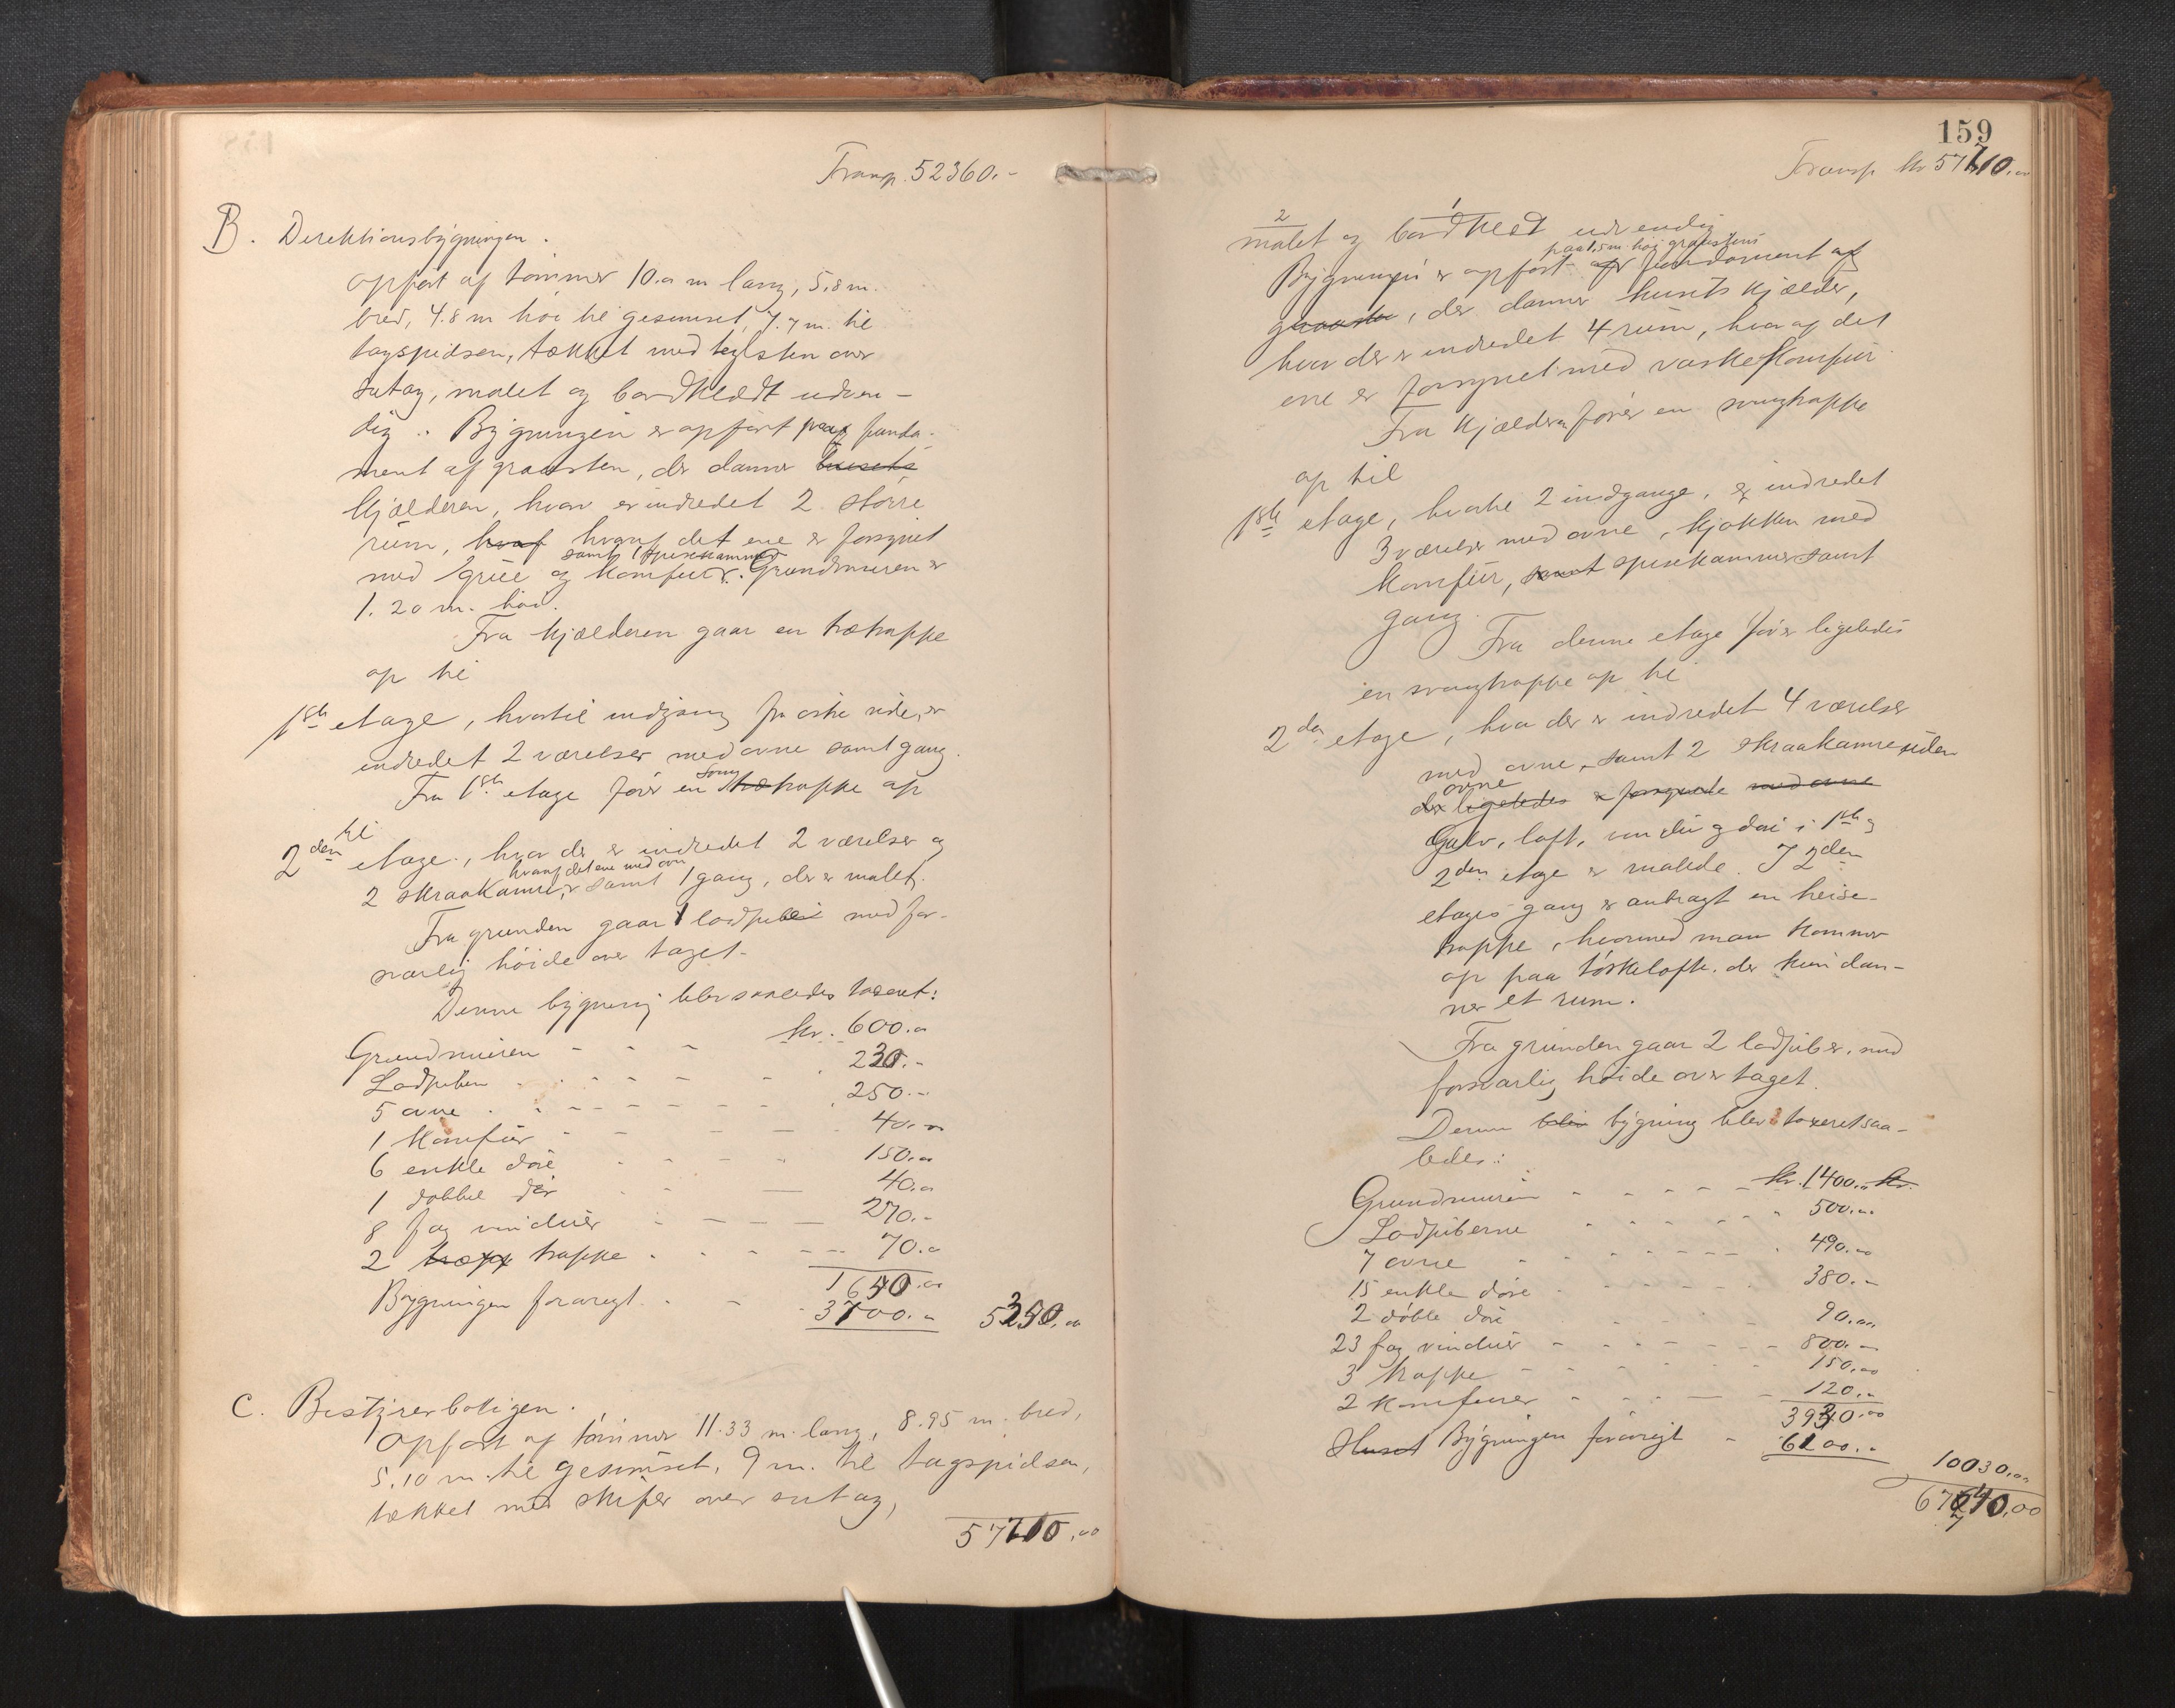 Transp. 52360.-
B. Direktionsbygningen.
opført af tømmer 10.0 m lang, 5.8 m.
bred, 4.8 m høi til gesimset, 7.7 m. til
tagspidsen, tækket med teglsten over
sutag, malet og bordklædt udven-
dig. Bygningen er opført paa funda-
ment af graasten, der danner husets
kjælderen, hvor er indredet 2 større
rum, hvaf hvoraf det ene er forsynet
samt 1 spisekammer
med 1 grue og komfur. Grundmuren er
1.20 m. høi.
Fra kjælderen gaar en trætrappe
op til
1ste etage, hvortil indgang fra østre side, er
indredet 2 værelser med ovne samt gang.
Fra 1ste etage fører en svingtrappe op
til
2den etage, hvor der er indredet 2 værelser og
hvoraf det ene med ovn
2 skraakamre, samt 1 gang, der er malet.
Fra grunden gaar 1 lodpibe med for-
svarlig høide over taget.
Denne bygning blev saaledes taxeret:
Grundmuren - - - kr. 600.00
Lodpiben - - - 230.-
5 ovne - - - 250.-
1 komfur - - - 40.00
6 enkle døre - - - 150.00
1 dobbel dør - - - 40.00
8 fag vinduer - - - 270.-
2 trapp trappe - - - 70.00
1650.00
Bygningen forøvrigt - - - 3700.- 5350.00
C. Bestyrerboligen.
Opført af tømmer 11.33 m. lang, 8.95 m. bred,
5.10 m. til gesimset, 9 m. til tagspidsen,
tækket med skifer over sutag,
57710.00
159
Transp. kr 57710.00
2 1
malet og bordklædt udvendig
paa 1.5 m. høi graastens
Bygningen er opført af fundament af
graasten, der danner husets kjælder,
hvor der er indredet 4 rum, hvoraf det
ene er forsynet med vaskekomfur.
Fra kjælderen fører en svingtrappe
op til
1ste etage, hvortil 2 indgange, er indredet
3 værelser med ovne, kjøkken med
komfur, samt spisekammer samt
gang.
Fra denne etage fører ligeledes
en svingtrappe op til
2den etage, hvor der er indredet 4 værelser
med ovne, samt 2 skraakamre uden
ovne
der ligeledes er forsynede med ovne
Gulv, loft, vinduer og døre i 1ste og
2den etage er malede. I 2den
etages gang er anbragt en heise-
trappe, hvormed man kommer
op paa tørkeloftet, der kun dan-
ner et rum.
Fra grunden gaar 2 lodpiber, med
forsvarlig høide over taget.
Denne blev bygning blev taxeret saa-
ledes:
Grundmuren - - - kr. 1400.00 kr.
Lodpiberne - - - 500.00
7 ovne - - - 490.00
15 enkle døre - - - 380.-
2 døble døre - - - 90.00
23 fag vinduer - - - 800.-
3 trappe - - - 150.00
2 komfurer - - - 120.-
3930.00
Huset Bygningen forøvrigt - 6100.-
10030.00
67740.00